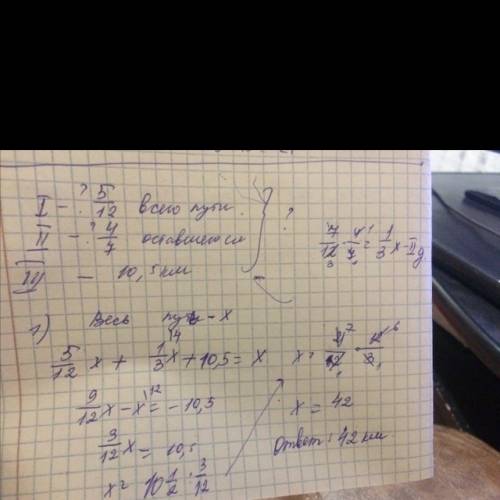 I - ? 5/12 всего пути
II - ? 4/7 оставшегося
III - 10,5 км
?
7/12 · 4/7 = 1/3 x - II д
1) Весь путь - x
5/12 x + 1/3 x + 10,5 = x
9/12 x - x = - 10,5
3/12 x = 10,5
x = 10 1/2 : 3/12
x = 42
Ответ: 42 км